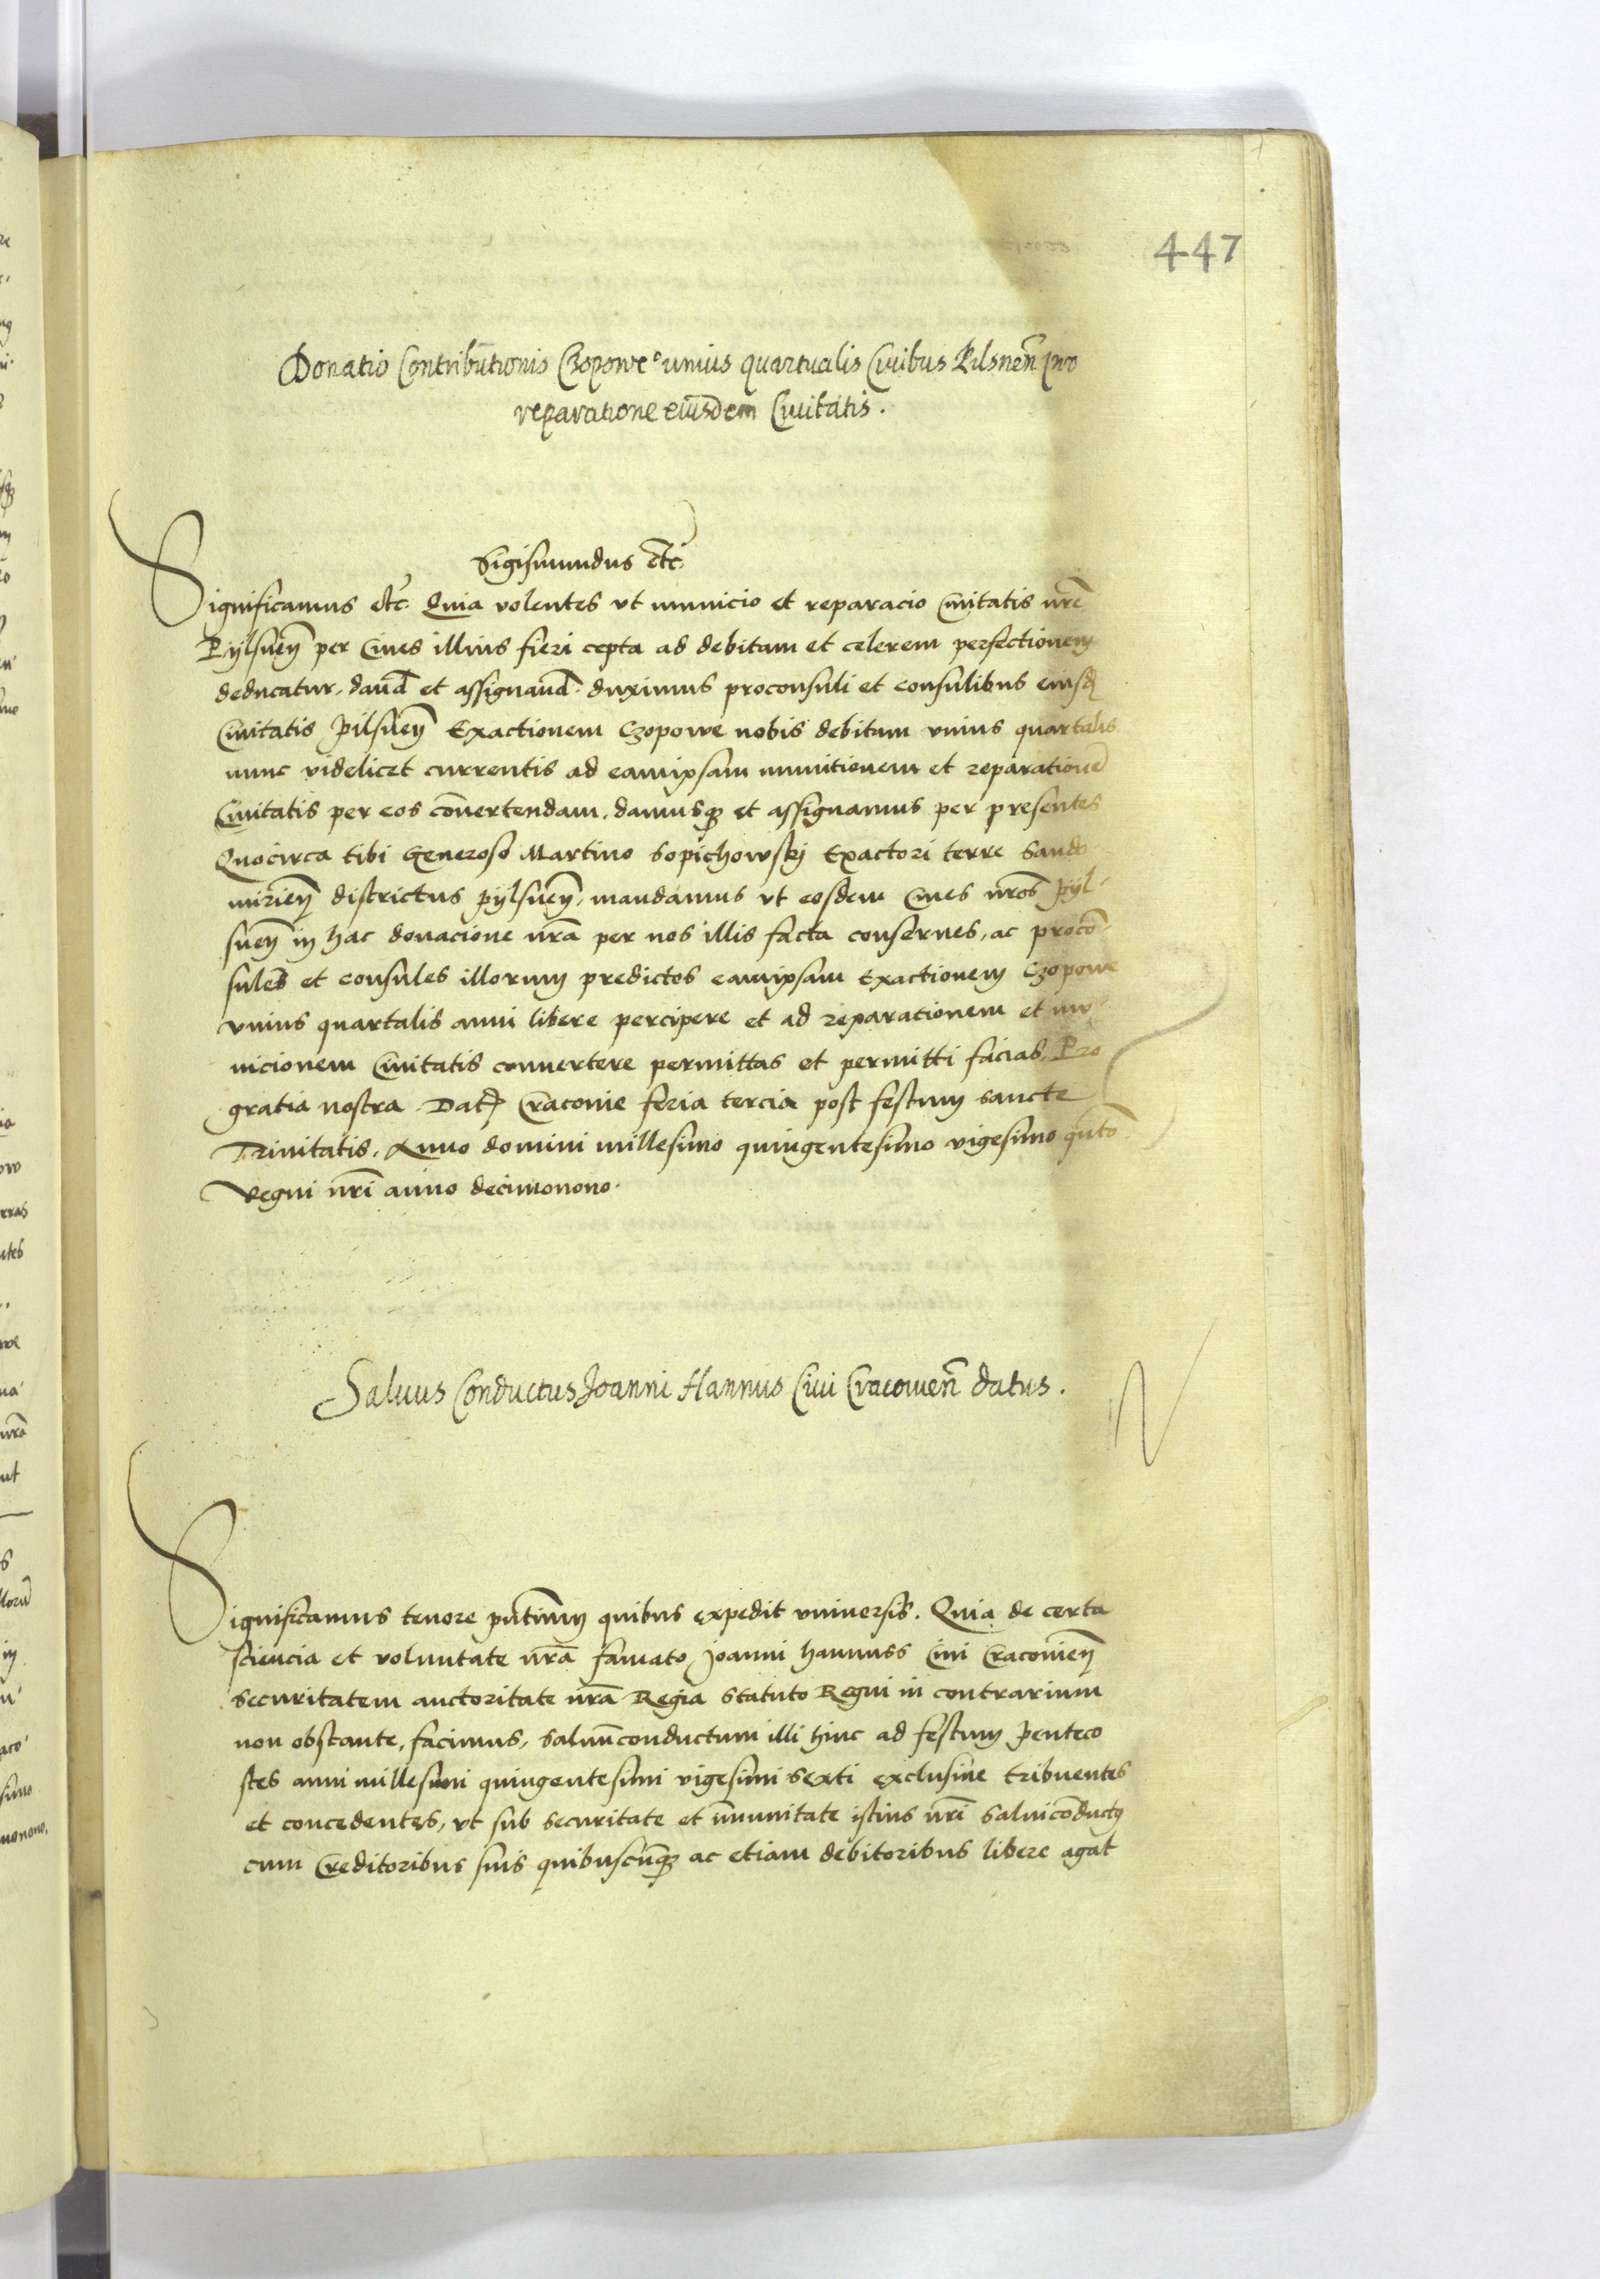 447
Donatio Contributionis Czopowe unius quartualis Civibus Pilsneñ pro
reparatione eiusdem Civitatis.
Sigismundus etc.
Significamus etc. Quia volentes vt municio et reparacio Civitatis nr̃e
Pÿlsneñ per Cives illius fieri cepta ad debitam et celerem perfectionem
deducatur, dand̃ et assignand̃ duximus proconsuli et consulibus eiusd̃
Civitatis pilsneñ Exactionem Czopowe nobis debitam vnius quartalis
nunc videlicet currentis ad eamipsam munitionem et reparationẽ
Civitatis per eos cõvertendam, damusq̃ et assignamus per presentes
Quocirca tibi Generoso Martino Sopichowskj Exactori terre Sando-
mirieñ districtus pÿlsneñ, mandamus vt eosdem Cives nr̃os pÿl-
sneñ in hac donacione nr̃a per nos illis facta conserves, ac procõ-
sules et consules illorum predictos eamipsam Exactionem Czopowe
vnius quartalis anni libere percipere et ad reparationem et mu-
nicionem Civitatis convertere permittas et permitti facias, Pro
gratia nostra Dat̃ Cracovie feria tercia post festum sancte
Trinitatis, Anno domini millesimo quingentesimo vigesimo qũto
Regni nr̃i anno decimonono.
Salvus Conductus Joanni Hannus Civi Cracovieñ datus.
Significamus tenore pñtium quibus expedit vniversis. Quia de certa
sciencia et voluntate nr̃a famato Joanni hannuss Civi Cracovieñ
securitatem auctoritate nr̃a Regia Statuto Regni in contrarium
non obstante, facimus, salvũconductum illi hinc ad festum penteco
stes anni millesimi quingentesimi vigesimi sexti exclusive tribuentes
et concedentes, vt sub securitate et im̃unitate istius nr̃i salvicõductus
cum Creditoribus suis quibuscũq̃ ac etiam debitoribus libere agat